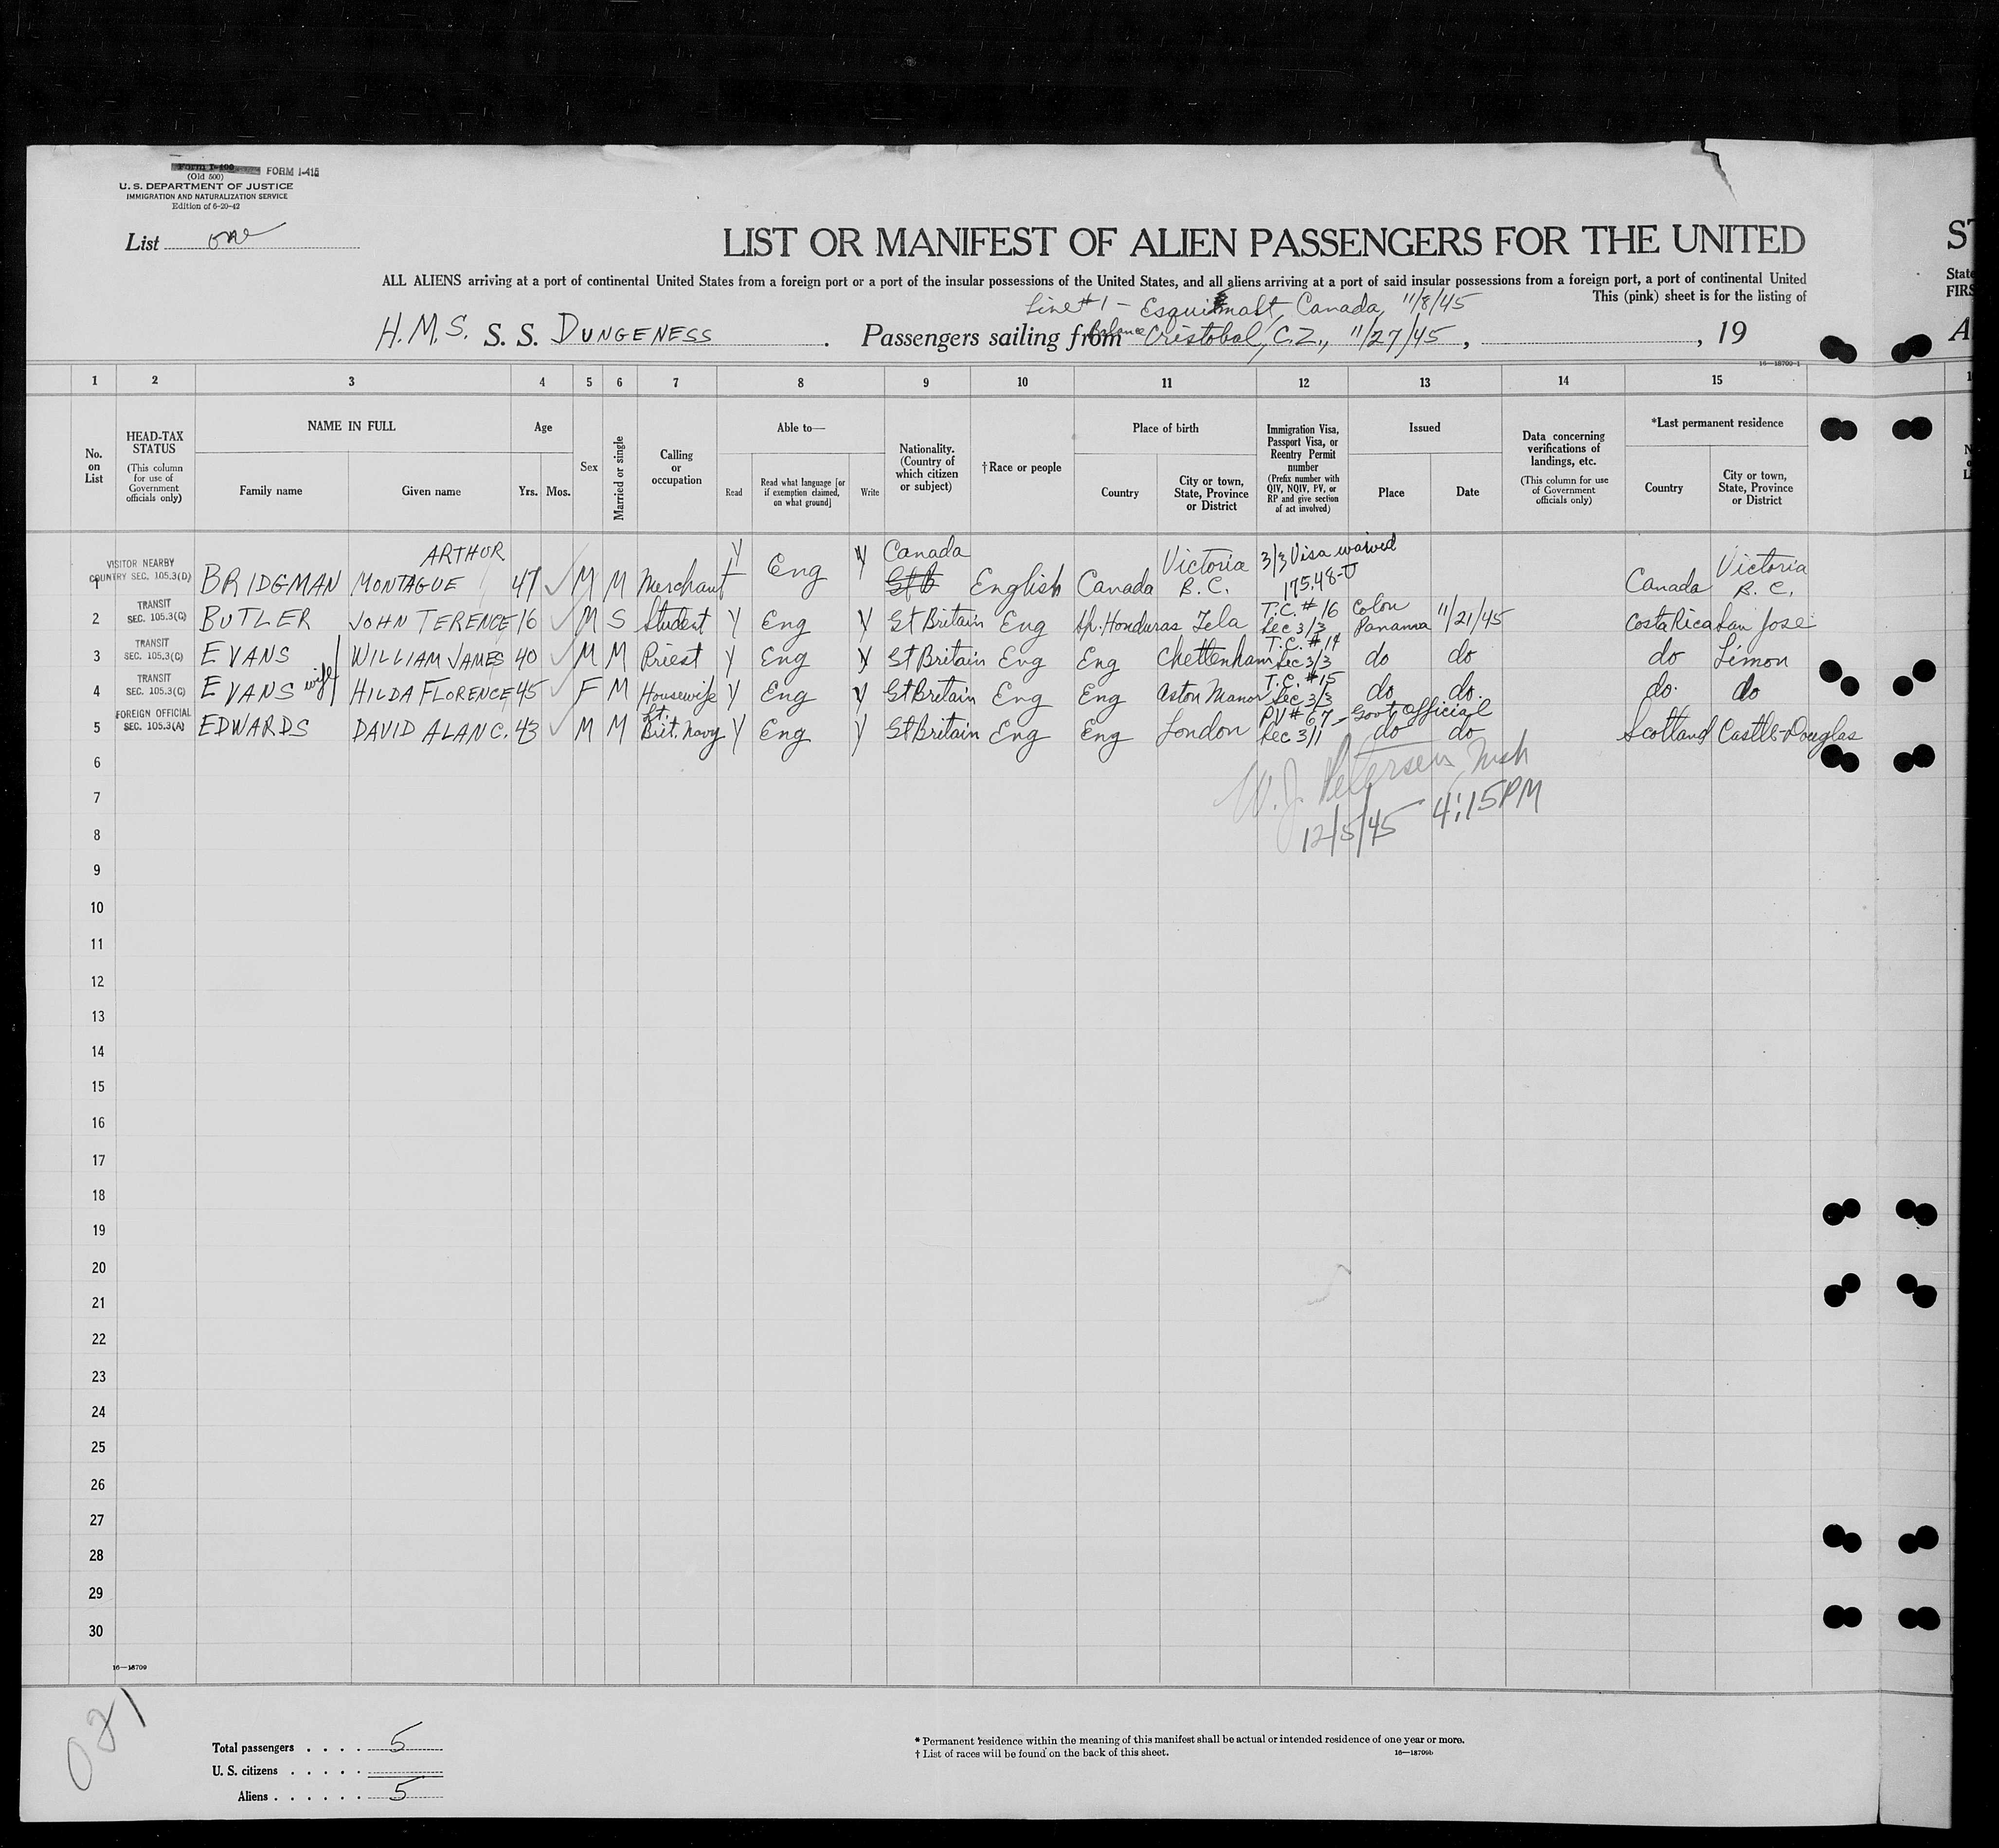 Form I-400 FORM I-415
(Old 500)
U. S. DEPARTMENT OF JUSTICE
IMMIGRATION AND NATURALIZATION SERVICE
Edition of 6-20-42
List one
LIST OR MANIFEST OF ALIEN PASSENGERS FOR THE UNITED ST
ALL ALIENS arriving at a port of continental United States from a foreign port or a port of the insular possessions of the United States, and all aliens arriving at a port of said insular possessions from a foreign port, a port of continental United State
This (pink) sheet is for the listing of FIRS
Line #1 - Esquimalt, Canada, 11/8/45
H.M.S. S. S. DUNGENESS . Passengers sailing from Balance Cristobal, C.Z., 11/27/45, , 19 A
16—18709-1
1 2 3 4 5 6 7 8 9 10 11 12 13 14 15
No. on List
HEAD-TAX STATUS
(This column for use of Government officials only)
NAME IN FULL
Family name Given name
Age
Yrs. Mos.
Sex
Married or single
Calling or occupation
Able to—
Read
Read what language [or if exemption claimed, on what ground]
Write
Nationality. (Country of which citizen or subject)
†Race or people
Place of birth
Country
City or town, State, Province or District
Immigration Visa, Passport Visa, or Reentry Permit number
(Prefix number with QIV, NQIV, PV, or RP and give section of act involved)
Issued
Place Date
Data concerning verifications of landings, etc.
(This column for use of Government officials only)
*Last permanent residence
Country
City or town, State, Province or District
1 VISITOR NEARBY COUNTRY SEC. 105.3(D) BRIDGMAN MONTAGUE ARTHUR 47 M M Merchant Y Eng Y Canada Gt B English Canada Victoria B.C. 3/3 Visa waived 175.48-U Canada Victoria B.C.
2 TRANSIT SEC. 105.3(C) BUTLER JOHN TERENCE 16 M S Student Y Eng Y Gt Britain Eng Sp. Honduras Tela T.C. #16 Sec 3/3 Colon Panama 11/21/45 Costa Rica San Jose
3 TRANSIT SEC. 105.3(C) EVANS WILLIAM JAMES 40 M M Priest Y Eng Y Gt Britain Eng Eng Cheltenham T.C. #14 Sec 3/3 do do do Limon
4 TRANSIT SEC. 105.3(C) EVANS wife HILDA FLORENCE 45 F M Housewife Y Eng Y Gt Britain Eng Eng Aston Manor T.C. #15 Sec 3/3 do do. do. do
5 FOREIGN OFFICIAL SEC. 105.3(A) EDWARDS DAVID ALAN C. 43 M M Lt. Brit. Navy Y Eng Y Gt Britain Eng Eng London PV #67 - Govt Official Sec 3/1 do do Scotland Castle-Douglas
6
W. J. Petersen
7
12/5/45 4:15PM
8
9
10
11
12
13
14
15
16
17
18
19
20
21
22
23
24
25
26
27
28
29
30
16—18709
081
Total passengers . . . . 5
U. S. citizens . . . . .
Aliens . . . . . . 5
* Permanent residence within the meaning of this manifest shall be actual or intended residence of one year or more.
† List of races will be found on the back of this sheet. 16—18709b